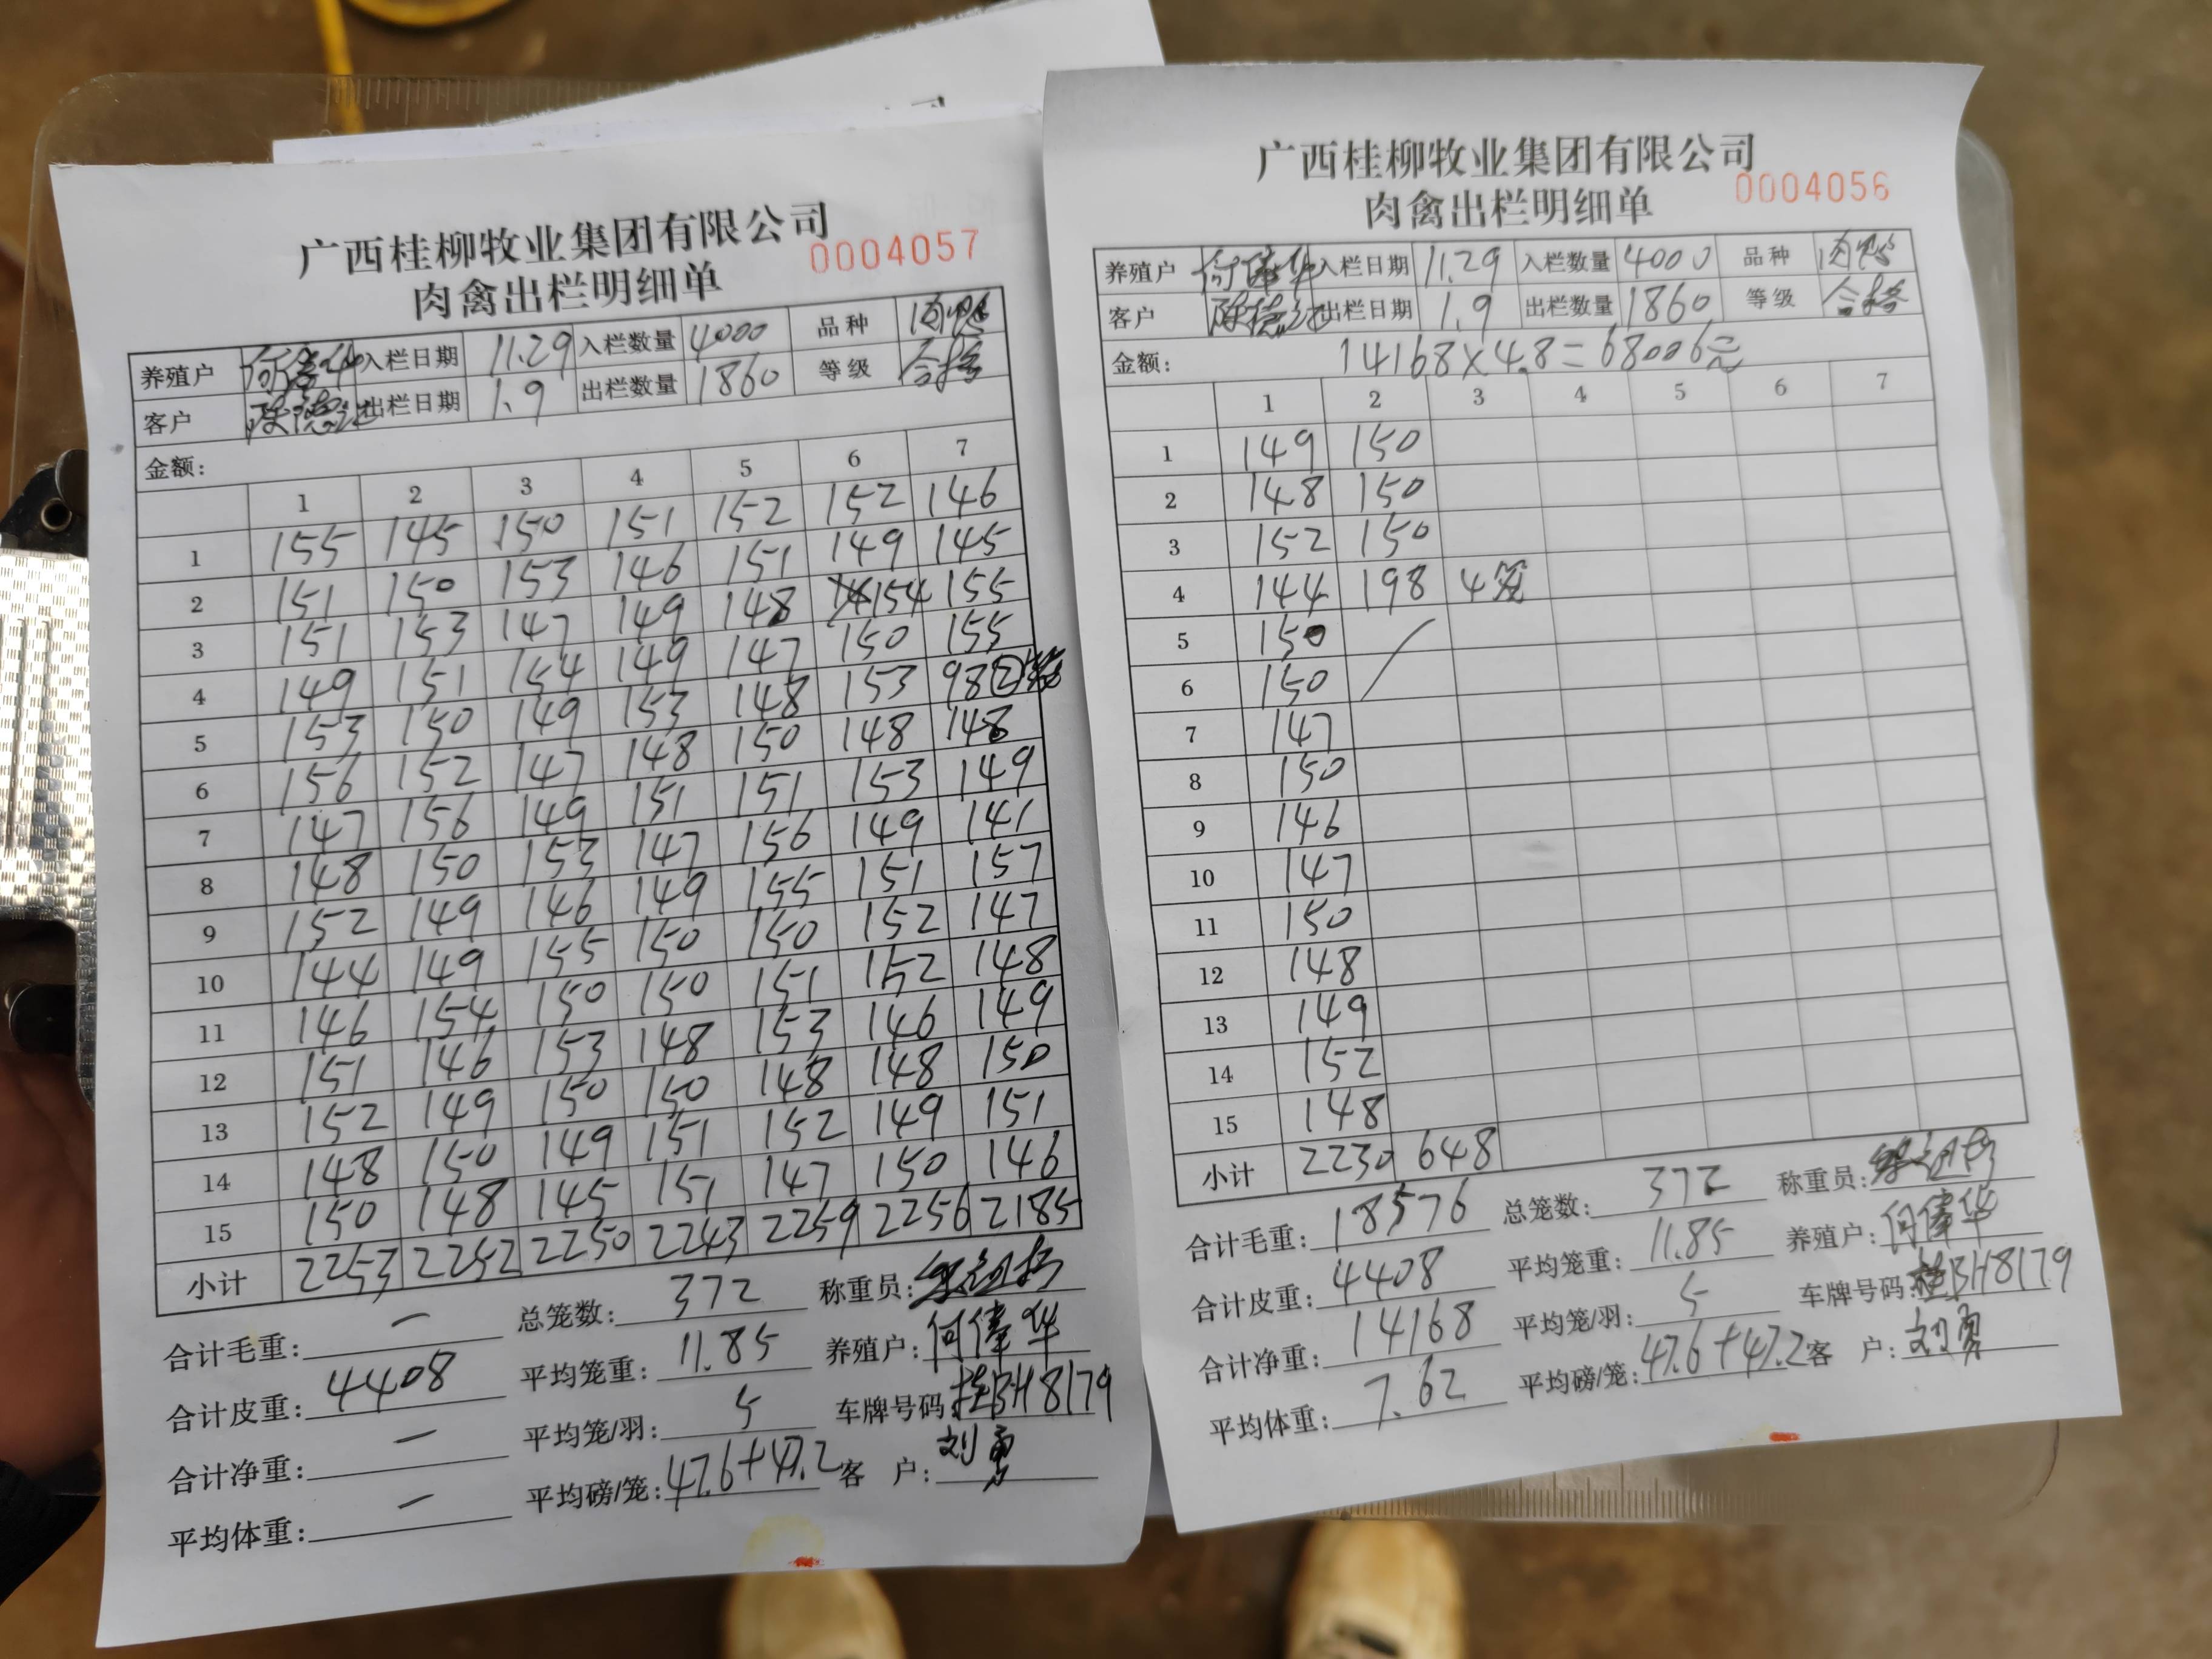 广西桂柳牧业集团有限公司
肉禽出栏明细单
0004057
养殖户 何伟华 入栏日期 11.29 入栏数量 4000 品种 肉鸭
客户 出栏日期 1.9 出栏数量 1860 等级 合格
金额:
1 2 3 4 5 6 7
1 155 145 150 151 152 152 146
2 151 150 153 146 151 149 145
3 151 153 147 149 148 154 155
4 149 151 154 149 147 150 155
5 153 150 149 153 148 153 98②笼
6 156 152 147 148 150 148 148
7 147 156 149 151 151 153 149
8 148 150 153 147 156 149 141
9 152 149 146 149 155 151 157
10 144 149 155 150 150 152 147
11 146 154 150 150 151 152 148
12 151 146 153 148 153 146 149
13 152 149 150 150 148 148 150
14 148 150 149 151 152 149 151
15 150 148 145 151 147 150 146
小计 2253 2252 2250 2243 2259 2256 2185
合计毛重: — 总笼数: 372 称重员:
合计皮重: 4408 平均笼重: 11.85 养殖户: 何伟华
合计净重: — 平均笼/羽: 5 车牌号码: 桂BH8179
平均体重: — 平均磅/笼: 47.6+47.2 客 户: 刘勇
广西桂柳牧业集团有限公司
肉禽出栏明细单
0004056
养殖户 何伟华 入栏日期 11.29 入栏数量 4000 品种 肉鸭
客户 出栏日期 1.9 出栏数量 1860 等级 合格
金额: 14168×4.8=68006元
1 2 3 4 5 6 7
1 149 150
2 148 150
3 152 150
4 144 198 4笼
5 150
6 150
7 147
8 150
9 146
10 147
11 150
12 148
13 149
14 152
15 148
小计 2230 648
合计毛重: 18576 总笼数: 372 称重员:
合计皮重: 4408 平均笼重: 11.85 养殖户: 何伟华
合计净重: 14168 平均笼/羽: 5 车牌号码: 桂BH8179
平均体重: 7.62 平均磅/笼: 47.6+47.2 客 户: 刘勇